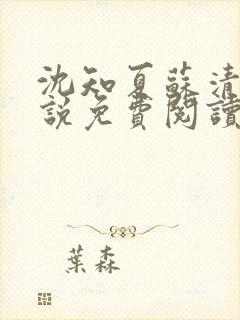 沈知夏蘇清
說免費閱讀
葉森